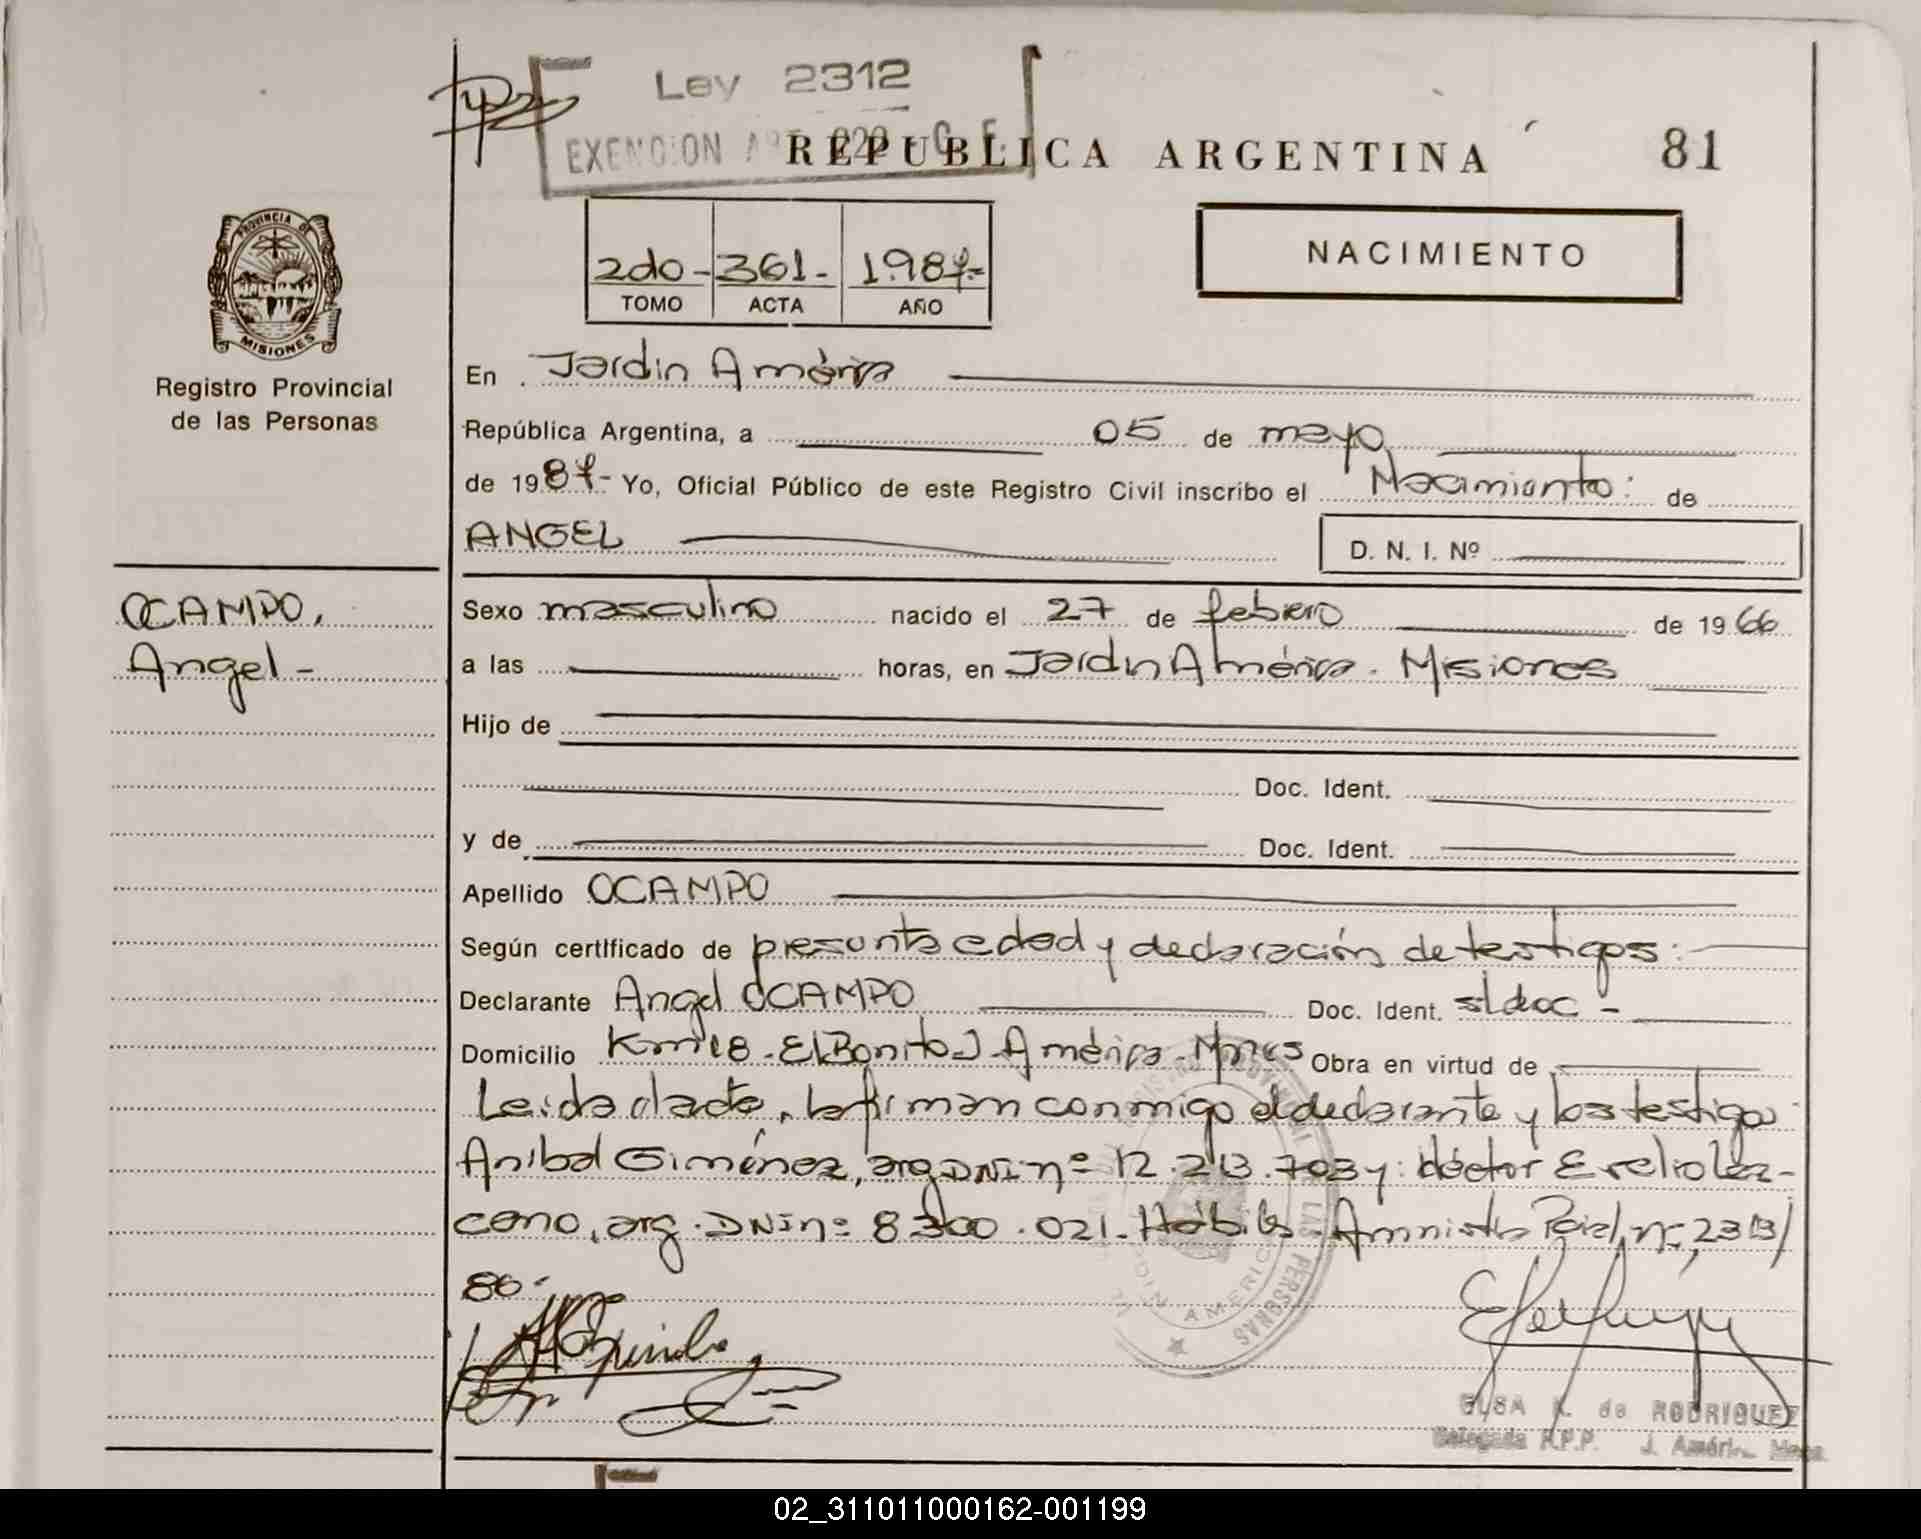 Ley 2312
EXENCION
REPUBLICA ARGENTINA 81
PROVINCIA DE
MISIONES
Registro Provincial
de las Personas
2do - 361 - 1.987 -
TOMO ACTA AÑO
NACIMIENTO
En Jardin América
República Argentina, a 05 de mayo
de 1987 - Yo, Oficial Público de este Registro Civil inscribo el Nacimiento: de
ANGEL D. N. I. Nº
OCAMPO,
Angel -
Sexo masculino nacido el 27 de febrero de 1966
a las horas, en Jardin América - Misiones
Hijo de
Doc. Ident.
y de Doc. Ident.
Apellido OCAMPO
Según certificado de presunta edad y declaración de testigos:
Declarante Angel OCAMPO Doc. Ident. s/doc -
Domicilio Km 18 - El Bonito J. América - Mnes Obra en virtud de
Leida el acta, la firman conmigo el declarante y los testigos
Anibal Giménez, arg. DNI nº 12.213.703 y: Héctor Erelio Lez-
cano, arg. DNI nº 8.300.021 - Hábiles - Amnistia Pcial nº 2313/
86 -
ELSA K. de RODRIGUEZ
Delegada R.P.P. J. Améric. Mnes.
02_311011000162-001199